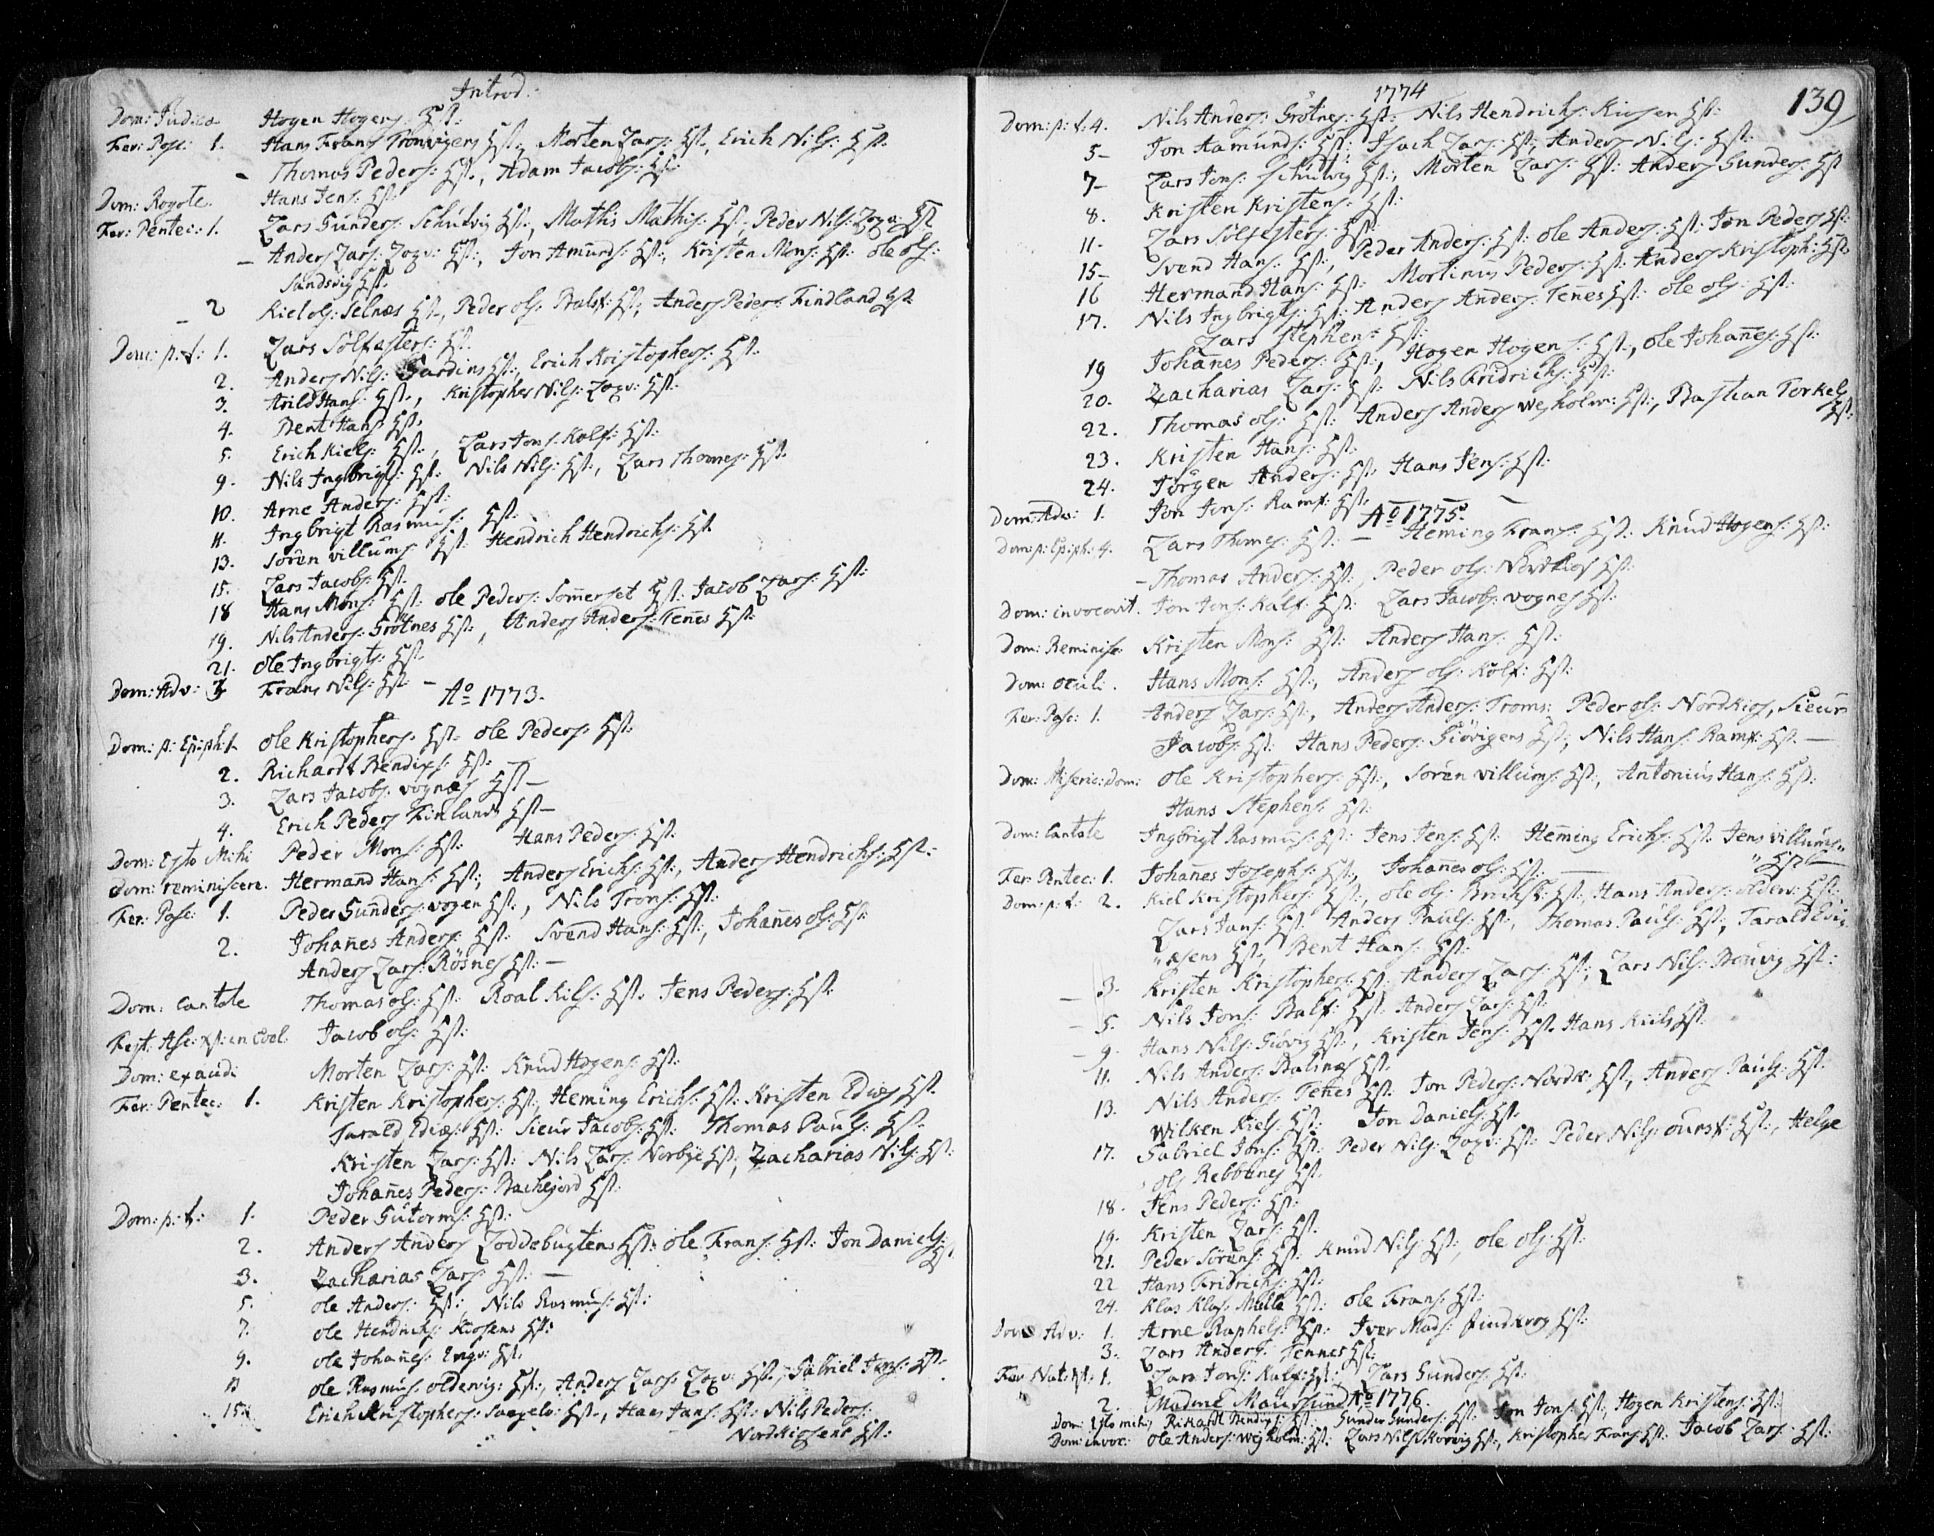 Introd:
Dom: Judica Hogen Hogens: Hst:
Fer: Pasc: 1. Hans Frans Tronvigens Hst:, Morten Lars: Hst, Erich Nils: Hst:
– Thomas Peders: Hst:, Adam Jacobs: Hst:
Dom: Rogate. Hans Jens: Hst:
Fer: Pentec: 1. Lars Gunders: Schulvig Hst:, Mathis Mathis: Hst, Peder Nils: Hst
– Anders Lars: Hst:, Jon Amunds: Hst:, Kristen Mons: Hst: ole ols:
Sandsvig Hst.
– 2 Kiel ols: Selnæs Hst:, Peder ols: Balsf: Hst, Anders Peders: Findland Hst
Dom: p: t: 1. Lars Solfasters: Hst.
2. Anders Nils: Hst:, Erich Kristophers: Hst:
3. Arild Hans: Hst:, Kristopher Nils: Hst:
4. Bent Hans Hst.
5. Erich Kiels: Hst:, Lars Jons: Kalf: Hst:
9. Nils Ingbrigts: Hst: Nils Nils: Hst:, Lars Thomes: Hst.
10. Arne Anders: Hst:
11. Ingbrigt Rasmus: Hst:
13. Sören villums Hst: Hendrich Hendrichs: Hst
15. Lars Jacobs: Hst:
18 Hans Mons: Hst: ole Peders: Sommerset Hst: Jacob Lars: Hst:
19. Nils Anders: Grötnes Hst:, Anders Anders: Tennes Hst:
21. ole Ingbrigts: Hst.
Dom: Adv: 3 Frans Nils: Hst: –
Ao 1773.
Dom: p: Epiph: 1. ole Kristophers: Hst: ole Peders: Hst:
2. Richardt Bendixs: Hst:
3. Lars Jacobs: vognæs Hst –
4. Erich Peders Finlands Hst –
Dom: Esto Mihi Peder Mons: Hst: Hans Peders: Hst:
Dom: reminiscere. Hermand Hans: Hst:, Anders Erichs: Hst:, Anders Hendrichs: Hst:
Fer: Pasc: 1. Peder Gunders: vogen Hst:, Nils Trons: Hst:
2. Johannes Anders: Hst: Svend Hans: Hst:, Johannes ols: Hst
Anders Lars: Rösnes Hst: –
Dom: Cantate Thomas ols: Hst: Roal Kils: Hst. Jens Peders: Hst:
Fest: Asc: Jacob ols: Hst:
Dom: exaudi Morten Lars: Hst: Knud Hogens: Hst:
Fer: Pentec: 1. Kristen Kristophers: Hst:, Heming Erichs: Hst: Kristen Hst.
Tarald Hst: Sieur Jacobs: Hst: Thomas Pauls: Hst.
Kristen Lars: Hst: Nils Lars: Norbye Hst:, Zacharias Nils: Hst:
Johannes Peders: Bachejord Hst:
Dom: p: t: 1. Peder Gutorms: Hst:
2. Anders Anders Loddebugtens Hst: ole Frans: Hst: Jon Daniels:
Hst
3. Zacharias Lars: Hst: –
5. ole Anders: Hst:, Nils Rasmus: Hst:
7. ole Hendrichs: Kiosens Hst:
9. ole Johannes: Hst.
11 ole Rasmus: oldervig: Hst:, Anders Lars: Hst:, Gabriel Jons: Hst.
15 Erich Kristophers: Hst:, Hans Jans: Hst: Nils Peders:
Nordkiosens Hst:
1774
139
Dom: p: t: 4. Nils Anders: Grötnes: Hst: Nils Hendrichs: Kiosen Hst:
5 – Jon Aamunds: Hst: Isach Lars: Hst:, Anders Nils: Hst:
7 – Lars Jons: Schulvig Hst:, Morten Lars: Hst: Anders Gunders: Hst
8. Kristen Kristens: Hst:
11. Lars Solfasters: Hst:
15 – Svend Hans: Hst:, Peder Anders: Hst: ole Anders: Hst: Jon Peders Hst:
16 Hermand Hans: Hst: Mortinus Peders: Hst: Anders Kristoph: Hst:
17. Nils Ingbrigts: Hst: Anders Anders: Tennes Hst: ole ols: Hst:
Lars Stephens: Hst:
19 Johannes Peders: Hst:, Hogen Hogens: Hst:, ole Johannes: Hst:
20. Zacharias Lars: Hst: Nils Fridrichs: Hst:
22. Thomas ols: Hst: Anders Anders Wejholm: Hst:, Bastian Torkels
Hst.
23. Kristen Hans: Hst:
24. Jörgen Anders: Hst: Hans Jens: Hst:
Dom: Adv: 1. Jon Jons: Ramf: Hst –
Ao 1775.
Dom: p: Epiph: 4. Lars Thomes: Hst: – Heming Frans: Hst: Knud Hogens: Hst:
– Thomas Anders: Hst:, Peder ols: Nordkios Hst:
Dom: invocavit. Jon Jons: Kalf: Hst: Lars Jacobs: vognes Hst:
Dom: Reminisc: Kristen Mons: Hst: Anders Hans: Hst:
Dom: oculi. Hans Mons: Hst:, Anders ols: Kolf: Hst:
Fer: Pasc: 1. Anders Lars: Hst:, Anders Anders: Troms: Peder ols: Nordkios, Sieur
Jacobs: Hst: Hans Peders: Giövigens Hst:, Nils Hans: Ramf: Hst: –
Dom: Miseric: Dom: ole Kristophers: Hst:, Sören villums: Hst:, Antonius Hans: Hst:
Hans Stephens: Hst:
Dom: Cantate Ingbrigt Rasmus: Hst: Jens Jens: Hst: Heming Erichs: Hst. Jens villums
" Hst –
Fer: Pentec: 1. Johannes Josephs: Hst:, Johannes ols: Hst: –
Dom: p: t: 2. Kiel Kristophers: Hst:, ole ols: Hst:, Hans Anders: olderv: Hst:
Lars Jans: Hst: Anders Pauls: Hst:, Thomas Pauls: Hst:, Tarald
Hst:, Bent Hans: Hst:
– 3. Kristen Kristophers: Hst: Anders Lars: Hst:, Lars Nils: Hst:
– 5. Nils Jons: Balsf: Hst: Anders Lars: Hst:
– 9. Hans Nils: Giövig Hst:, Kristen Jens: Hst. Hans Kiils Hst:
11. Nils Anders: Balsnæs Hst:
13. Nils Anders: Tenes Hst: Jon Peders: Nordk: Hst:, Anders Pauls: Hst:
Wilken Kiels: Hst: Jon Daniels: Hst:
17. Gabriel Jons: Hst: Peder Nils: Hst: Peder Nils: oursf: Hst:, Helge
ols Rebbenes Hst:
18. Jens Peders: Hst:
19. Kristen Lars: Hst:
21. Peder Sörens: Hst: Knud Nils: Hst:, ole ols: Hst:
22 Hans Fridrichs: Hst:
24. Klas Klas: Hst: ole Frans: Hst:
Dom: Adv: 1. Arne Raphels: Hst: Iver Mads: Findkrog Hst:
3. Lars Anders: Tennes Hst:
Fer: Nat: 1. Lars Jons: Kalf: Hst: Lars Gunders: Hst:
2. Madme Maursund Ao 1776.
Dom: Esto mihi, Rikardt Bendixs: Hst: Gunder Gunders: Hst: Jon Jons: Hst, Hogen Kristens: Hst:
Dom: invoc: ole Anders: Wejholm: Hst: Lars Nils: Korvig Hst:, Kristopher Frans: Hst: Jacob Lars: Hst: